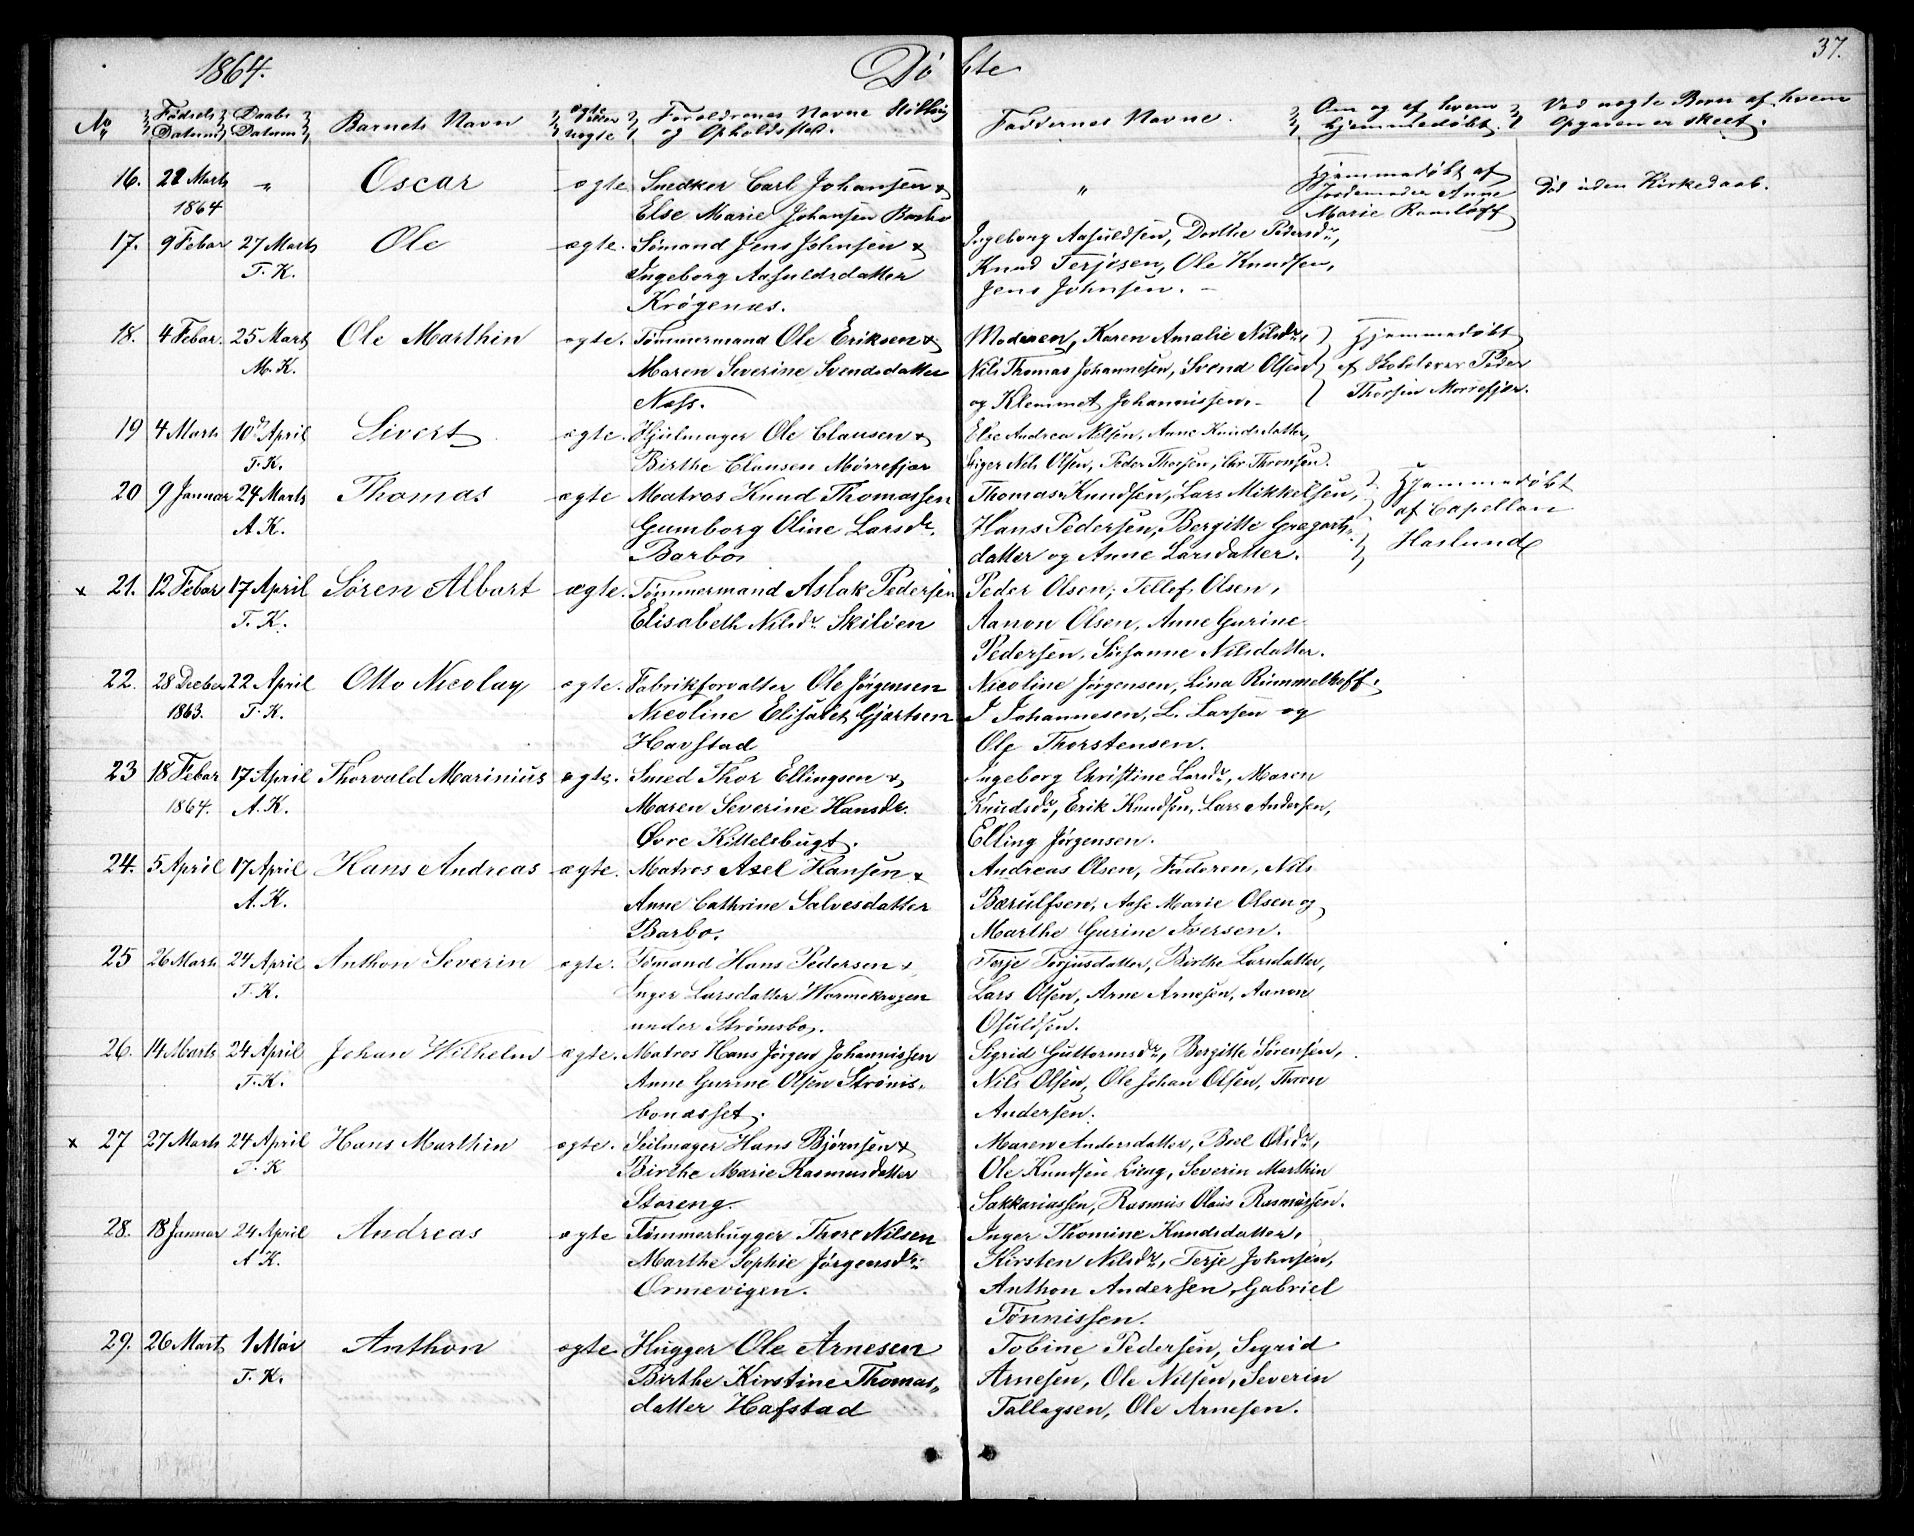 1864. Döbte 37.
No Fødsels Datum Daabs Datum Barnets Navn ægte eller uægte Foreldrenes Navne Stilling og Opholdssted. Faddernes Navne. Om og af hvem hjemmedøbt. Ved uægte Børn af hvem Opgaven er skeet.
16. 22 Marts " Oscar ægte Snedker Carl Johansen & " Hjemmedøbt af Død uden Kirkedaab.
1864 Else Marie Johansen Barbo Jordemoder Anne
Marie Ramløff
17. 9 Febar 27 Marts Ole ægte. Sömand Jens Johnsen & Ingeborg Aasuldsen, Dorthe Pedersdr,
T. K. Ingeborg Aasuldsdatter Knud Terjesen, Ole Knudsen,
Krögenæs. Jens Johnsen. –
18. 4 Febar. 25 Marts Ole Marthin ægte. Tömmermand Ole Eriksen & Moderen, Karen Amalie Nilsdr, Hjemmedøbt
M. K. Maren Severine Svendsdatter Nils Thomas Johannesen, Svend Olsen af Skolelærer Peder
Næss. og Klemmet Johannissen. – Thorsen Mørrefjær.
19 4 Marts 10d April Sivert ægte. Hjulmager Ole Clausen & Else Andrea Nilsen, Anne Knudsdatter,
T. K. Birthe Clausen Mörrefjær Eiger Nils Olsen, Peder Thorsen, Chr Thronsen.
20 9 Januar 24 Marts Thomas ægte Matros Knud Thomassen Thomas Knudsen, Lars Mikkelsen, Hjemmedøbt
A. K. Gumborg Oline Larsdr. Hans Pedersen, Bergitte Gregarts- af Capellan
Barbo datter og Anne Larsdatter. Haslund
x 21. 12 Febar 17 April Sören Albert ægte. Tömmermand Aslak Pedersen Peder Olsen, Tellef Olsen,
T. K. Elisabeth Nilsdr Skilöen Aanon Olsen, Anne Gurine
Pedersen, Susanne Nilsdatter.
22. 28 Decber 22 April Otto Nicolay ægte. Fabrikforvalter Ole Jörgensen Nicoline Jörgensen, Lina Rummelhoff.
1863. T. K. Nicoline Elisabet Gjertsen J Johannesen, L. Larsen og
Havstad Ole Thorstensen.
23 18 Febar 17 April Thorvald Marinius ægte. Smed Thor Ellingsen & Ingeborg Christine Larsdr, Maren
1864. A. K. Maren Severine Hansdr. Knudsdr, Erik Knudsen, Lars Andersen,
Övre Kittelsbugt. Elling Jörgensen.
24. 5 April 17 April Hans Andreas ægte. Matros Axel Hansen & Andreas Olsen, Faderen, Nils
A. K. Anne Cathrine Salvesdatter Bærulfsen, Aase Marie Olsen og
Barbo. Marthe Gurine Iversen.
25 26 Marts 24 April Anthon Severin ægte. Sömand Hans Pedersen & Terje Terjusdatter, Birthe Larsdatter,
T. K. Inger Larsdatter Warmekrogen Lars Olsen, Arne Arnesen, Aanon
under Strömsbo. Osuldsen.
26. 14 Marts 24 April Johan Wilhelm ægte. Matros Hans Jörgen Johannissen Sigrid Guttormsdr, Bergitte Sörensen,
T. K. Anne Gurine Olsen Ströms- Nils Olsen, Ole Johan Olsen, Thron
bonæsset. Andersen.
x 27 27 Marts 24 April Hans Marthin ægte. Seilmager Hans Bjørnsen & Maren Andersdatter, Beel Olsdr,
T. K Birthe Marie Rasmusdatter Ole Knudsen Lieng, Severin Marthin
Støreng. Sakkariassen, Rasmus Olaus Rasmussen.
28. 18 Januar 24 April Andreas ægte Tömmerhugger Thore Nilsen Inger Thomine Knudsdatter,
A K. Marthe Sophie Jörgensdr. Kirsten Nilsdr, Terje Johnsen,
Ormevigen. Anthon Andersen, Gabriel
Tönnissen.
29. 26 Mart 1 Mai Anthon ægte Hugger Ole Arnesen Tobine Pedersen, Sigrid
T. K. Birthe Kirstine Thomas- Arnesen, Ole Nilsen, Severin
datter Hafstad Tallagsen, Ole Arnesen.